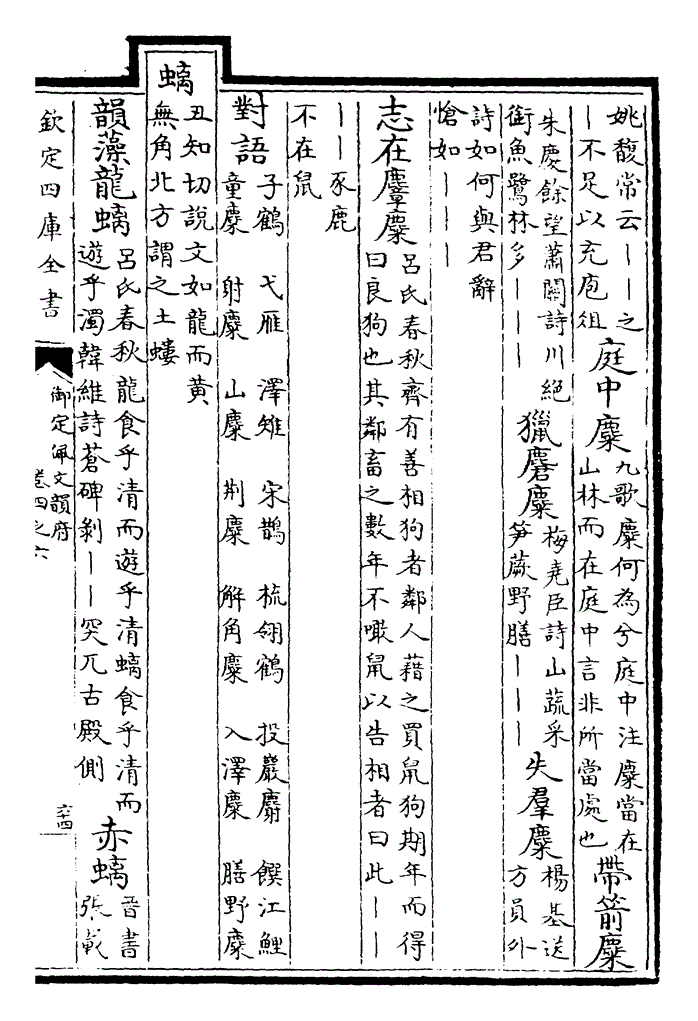 姚馥常云丨丨之
丨不足以充庖俎
庭中麋
九歌麋何為兮庭中注麋當在
山林而在庭中言非所當處也
帶箭麋
朱慶餘望蕭關詩川絕
銜魚鷺林多丨丨丨
獵麏麋
梅堯臣詩山蔬采
笋蕨野膳丨丨丨
失羣麋
楊基送
方員外
詩如何與君辭
愴如丨丨丨
志在麞麋
呂氏春秋齊有善相狗者鄰人藉之買鼠狗期年而得
曰良狗也其鄰畜之數年不噉鼠以告相者曰此丨丨
丨丨豕鹿
不在鼠
對語
子鶴 弋雁 澤雉 宋鵲 梳翎鶴 投巖麝 饌江鯉
童麋 射麋 山麋 荆麋 解角麋 入澤麋 膳野麋
螭
丑知切說文如龍而黃
無角北方謂之土螻
韻藻
龍螭
呂氏春秋龍食乎清而遊乎清螭食乎清而
遊乎濁韓維詩蒼碑剝丨丨突兀古殿側
赤螭
晉書
張載
欽定四庫全書
御定佩文韻府
卷四之六
六十四